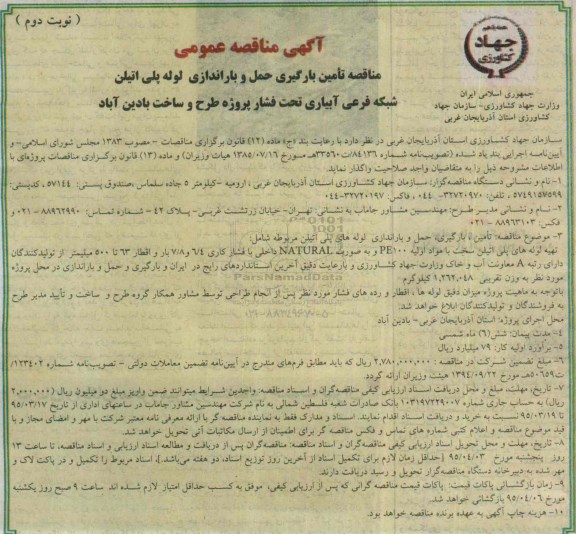 ( نوبت دوم )
آگهی مناقصه عمومی
مناقصه تأمین بارگیری حمل و باراندازی لوله پلی اتیلن
شبکه فرعی آبیاری تحت فشار پروژه طرح و ساخت بادین آباد
جهاد
کشاورزی
جمهوری اسلامی ایران
وزارت جهاد کشاورزی- سازمان جهاد
کشاورزی استان آذربایجان غربی
سازمان جهاد کشاورزی استان آذربایجان غربی در نظر دارد با رعایت بند (ج) ماده (۱۲) قانون برگزاری مناقصات – مصوب ۱۳۸۳ مجلس شورای اسلامی- و
آیین‌نامه اجرایی بند یاد شده (تصویب‌نامه شماره ۸۴۱۳۶/ت۳۳۵۶۰هـ مورخ ۱۳۸۵/۰۷/۱۶ هیات وزیران) و ماده (۱۳) قانون برگزاری مناقصات پروژه‌ای با
اطلاعات مشروحه ذیل را به متقاضیان واجد صلاحیت واگذار نماید.
۱-نام و نشانی دستگاه مناقصه‌گزار: سازمان جهاد کشاورزی استان آذربایجان غربی ، ارومیه -کیلومتر ۵ جاده سلماس ،صندوق پستی: ۵۷۱۴۴ ،کدپستی:
۵۷۴۹۱۵۷۵۹۹ ، تلفن: ۳۲۷۲۰۹۷۰-۰۴۴ ، فاکس: ۳۲۷۲۰۱۹۷-۰۴۴
۲- نام و نشانی مدیر طرح: مهندسین مشاور جاماب به نشانی: تهران- خیابان زرتشت غربی- پلاک ۴۲ – شماره تماس: ۸۸۹۶۲۹۹۰ -۰۲۱ و
فکس: ۸۸۹۶۳۱۰۳ -۰۲۱
۳- موضوع مناقصه: تأمین ، بارگیری، حمل و باراندازی لوله های پلی اتیلن مربوطه شامل:
تهیه لوله های پلی اتیلن سخت با مواد اولیه PE۱۰۰ و به صورت NATURAL داخلی با فشار کاری ۶/۴ و۷/۸ بار و اقطار ۶۳ تا ۵۰۰ میلیمتر از تولیدکنندگان
دارای رتبه A معاونت آب و خاک وزارت جهاد کشاورزی و بارعایت دقیق آخرین استانداردهای رایج در ایران و بارگیری و حمل و باراندازی در محل پروژه
مورد نظر به وزن تقریبی ۹,۲۶۲,۰۴۸ کیلوگرم
باتوجه به ماهیت پروژه، میزان دقیق لوله ها ، اقطار و رده های فشار مورد نظر پس از انجام طراحی توسط مشاور همکار گروه طرح و ساخت و تأیید مدیر طرح
به فروشندگان و تولیدکنندگان ابلاغ خواهد شد.
محل اجرای پروژه: استان آذربایجان غربی- بادین آباد
۴- مدت پیمان: شش(۶) ماه شمسی
۵- برآورد اولیه کار: ۷۹ میلیارد ریال
۶- مبلغ تضمین شرکت در مناقصه : ۲,۷۸۰,۰۰۰,۰۰۰ ریال که باید مطابق فرم‌های مندرج در آیین‌نامه تضمین معاملات دولتی – تصویب‌نامه شماره ۱۲۳۴۰۲/
ت۵۰۶۵۹هـ مورخ ۱۳۹۴/۰۹/۲۲ هیئت وزیران ارائه گردد.
۷- تاریخ، مهلت و محل دریافت اسناد ارزیابی کیفی مناقصه‌گران و اسناد مناقصه: واجدین شرایط میتوانند ضمن واریز مبلغ دو میلیون ریال (۲,۰۰۰,۰۰۰
ریال) به حساب جاری شماره ۰۱۰۳۱۹۷۲۲۹۰۰۷ بانک صادرات شعبه فلسطین شمالی به نام شرکت مهندسین مشاور جاماب در ساعتهای اداری از تاریخ ۹۵/۰۳/۱۷
تا ۹۵/۰۳/۱۹ نسبت به خرید و دریافت اسناد اقدام نمایند. اسناد و مدارک فقط به نماینده مناقصه گر با ارائه معرفی نامه معتبر شرکت با مهر و امضای مجاز و با
قید موضوع مناقصه و اعلام کتبی شماره های تماس و فکس مناقصه گر برای اطمینان از ارسال مکاتبات آتی تحویل خواهد شد.
۸- تاریخ، مهلت و محل تحویل اسناد ارزیابی کیفی مناقصه‌گران و اسناد مناقصه: مناقصه‌گران پس از دریافت و مطالعه اسناد ارزیابی و اسناد مناقصه، تا ساعت ۱۳
روز پنجشنبه مورخ ۹۵/۰۴/۰۳ (حداقل زمان لازم برای تکمیل اسناد از آخرین روز توزیع اسناد، دو هفته می‌باشد.)، اسناد مربوط را تکمیل و در پاکت لاک و
مهر شده به دبیرخانه دستگاه مناقصه‌گزار تحویل و رسید دریافت دارند.
۹- زمان بازگشائی پاکات قیمت: پاکات قیمت مناقصه گرانی که پس از ارزیابی کیفی، موفق به کسب حداقل امتیاز لازم شده اند ساعت ۹ صبح روز یکشنبه
مورخ ۹۵/۰۴/۰۶ بازگشائی خواهد شد.
۱۰- هزینه چاپ آگهی به عهده برنده مناقصه خواهد بود.